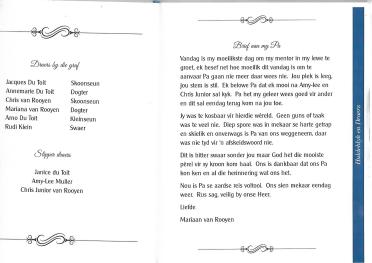 Draers by die graf
Jacques Du Toit Skoonseun
Annemarie Du Toit Dogter
Chris van Rooyen Skoonseun
Mariana van Rooyen Dogter
Arno Du Toit Kleinseun
Rudi Klein Swaer
Slippe draers
Janice du Toit
Amy-Lee Muller
Chris Junior van Rooyen
Brief aan my Pa
Vandag is my moeilikste dag om my mentor in my lewe te
groet, ek besef net hoe moeilik dit vandag is om te
aanvaar Pa gaan nie meer daar wees nie. Jou plek is leeg,
jou stem is stil. Ek belowe Pa dat ek mooi na Amy-lee en
Chris Junior sal kyk. Pa het my geleer wees goed vir ander
en dit sal eendag terug kom na jou toe.
Jy was te kosbaar vir hierdie wêreld. Geen guns of taak
was te veel nie. Diep spore was in menskaar se harte getrap
en skielik en onverwags is Pa van ons weggeneem, daar
was nie tyd vir 'n afskeidswoord nie.
Dit is bitter swaar sonder jou maar God het die mooiste
pêrel vir sy kroon kom haal. Ons is dankbaar dat ons Pa
kon ken en al die herinnering wat ons het.
Nou is Pa se aardse reis voltooi. Ons sien mekaar eendag
weer. Rus sag, veilig by onse Heer.
Liefde
Mariaan van Rooyen
Huldeblyk en Draers